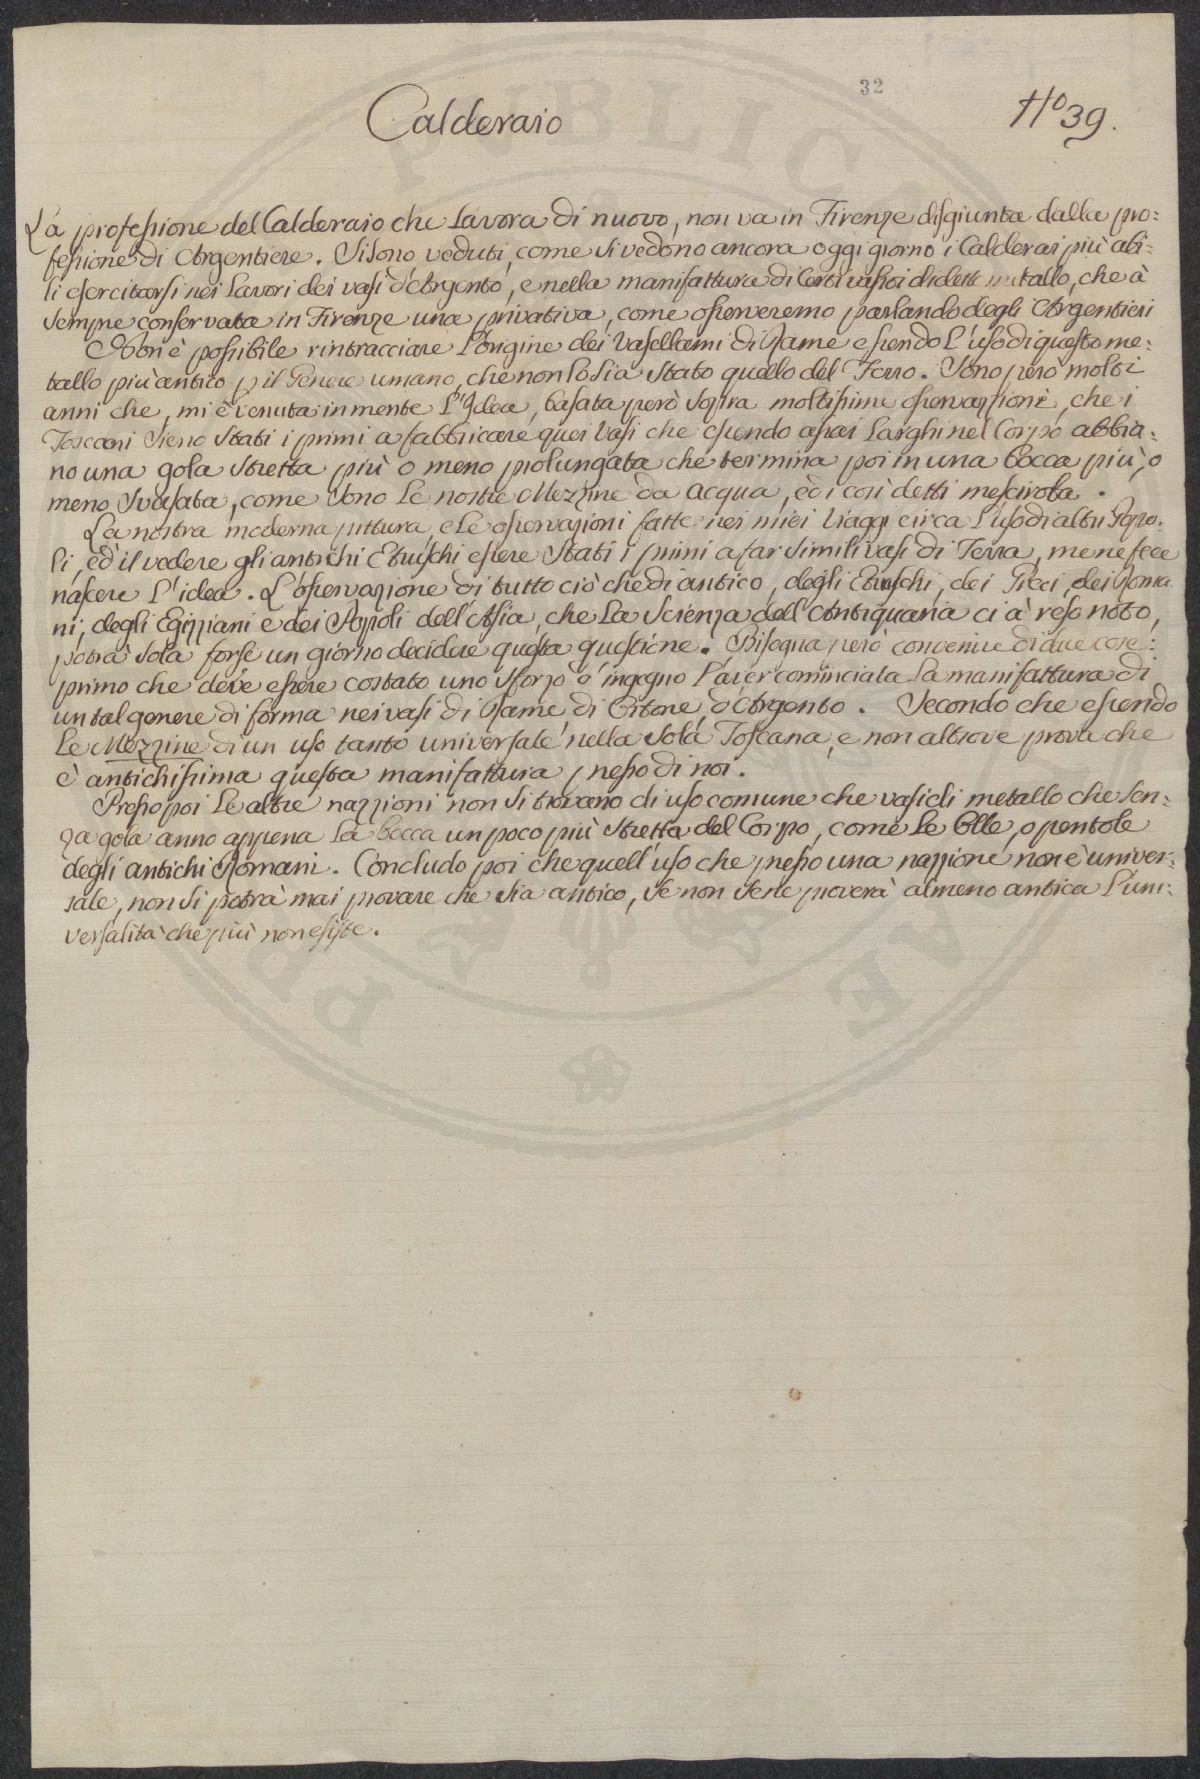 32
Calderaio
No 39.
La professione del Calderaio che lavora di nuovo, non va in Firenze disgiunta dalla pro:
fessione di Argentiere. Si sono veduti, come si vedono ancora oggi giorno i Calderai più abi:
li esercitarsi nei lavori dei vasi d'Argento, e nella manifattura di Certi vassoi di dette metallo, che à
sempre conservata in Firenze una privativa, come osserveremo parlando degli Argentieri
Non è possibile rintracciare l'origine dei vasellami di Rame essendo l'uso di questo me:
tallo più antico p il Genere umano, che non lo sia stato quello del Ferro. Sono però molti
anni che, mi è venuta in mente l'Idea, basata però sopra moltissime osservazzioni, che i
Toscani sieno stati i primi a fabbricare quei vasi che essendo assai larghi nel Corpo abbia:
no una gola stretta più o meno prolungata che termina poi in una bocca più, o
meno svasata, come sono le nostre Mezzine da acqua, ed i così detti mesciroba.
La nostra moderna pittura, e le osservazioni fatte nei miei viaggi circa l'uso di altri Popo:
li, ed il vedere gli antichi Etruschi essere stati i primi a far simili vasi di Terra, me ne fece
nascere l'idea. L'osservazione di tutto ciò che di antico, degli Etruschi, dei Greci, dei Roma
ni, degli Egizziani e dei Popoli dell'Asia, che la scienza dell'Antiquaria ci à reso noto,
potrà sola forse un giorno decidere questa questione. Bisogna però convenire di due cose:
primo che deve essere costato uno sforzo d'ingegno l'aver cominciata la manifattura di
un tal genere di forma nei vasi di Rame, di Ottone, d'Argento. Secondo che essendo
le Mezzine di un uso tanto universale nella sola Toscana, e non altrove prova che
è antichissima questa manifattura presso di noi.
Presso poi le altre nazzioni non si trovano di uso comune che vasi di metallo che sen:
za gola anno appena la bocca un poco più stretta del Corpo, come le Olle, o pentole
degli antichi Romani. Concludo poi che quell'uso che presso una nazzione non è univer:
sale, non si potrà mai provare che sia antico, se non se ne proverà almeno antica l'uni:
versalità che più non esiste.